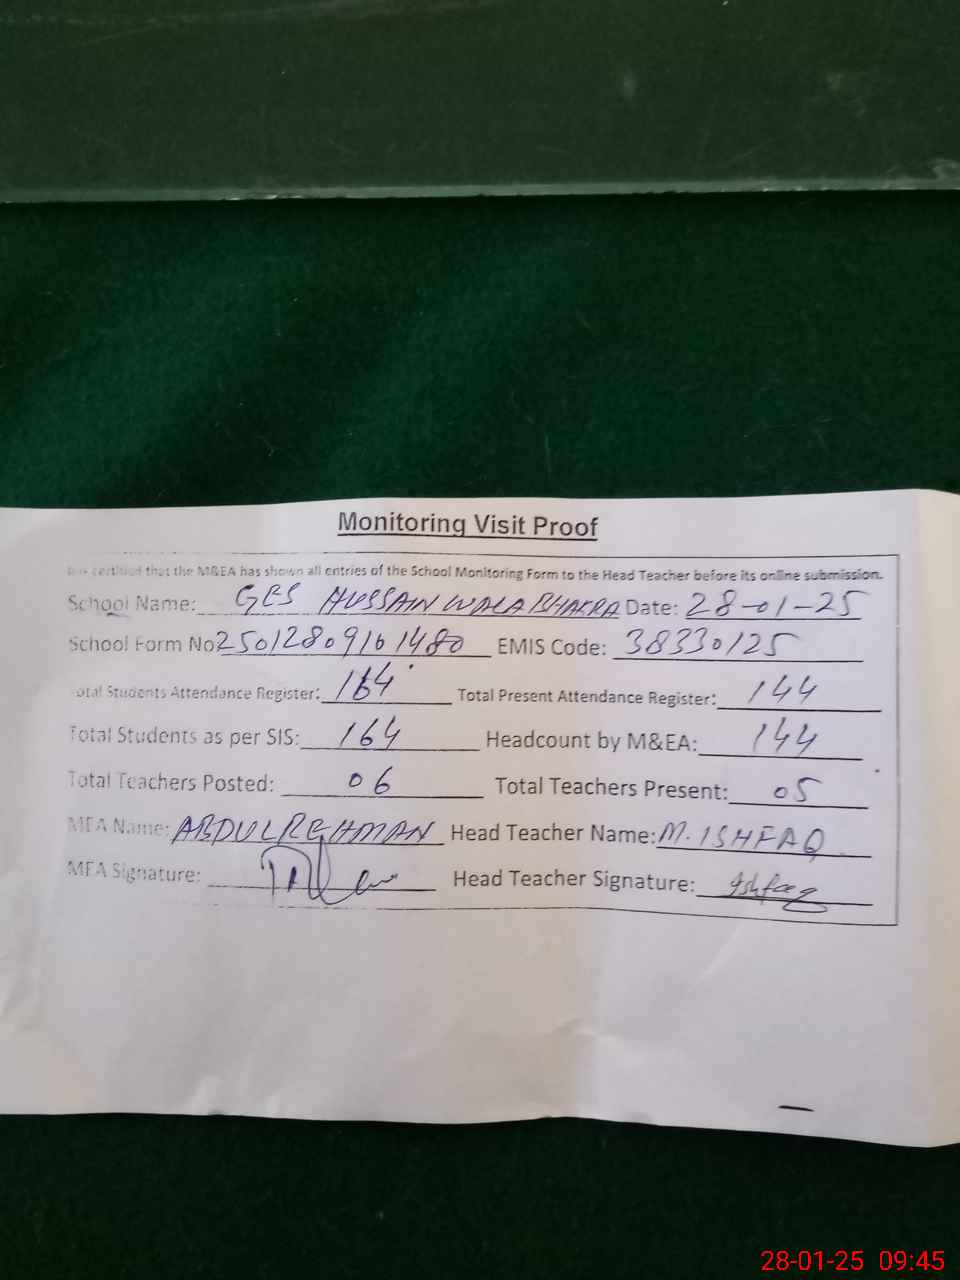 Monitoring Visit Proof
It is certified that the M&EA has shown all entries of the School Monitoring Form to the Head Teacher before its online submission.
School Name: GES HUSSAIN WALA BHAKRA Date: 28-01-25
School Form No 25012809161480 EMIS Code: 38330125
Total Students Attendance Register: 164 Total Present Attendance Register: 144
Total Students as per SIS: 164 Headcount by M&EA: 144
Total Teachers Posted: 06 Total Teachers Present: 05
MEA Name: ABDUL REHMAN Head Teacher Name: M. ISHFAQ
MEA Signature: Head Teacher Signature: Ishfaq
28-01-25 09:45